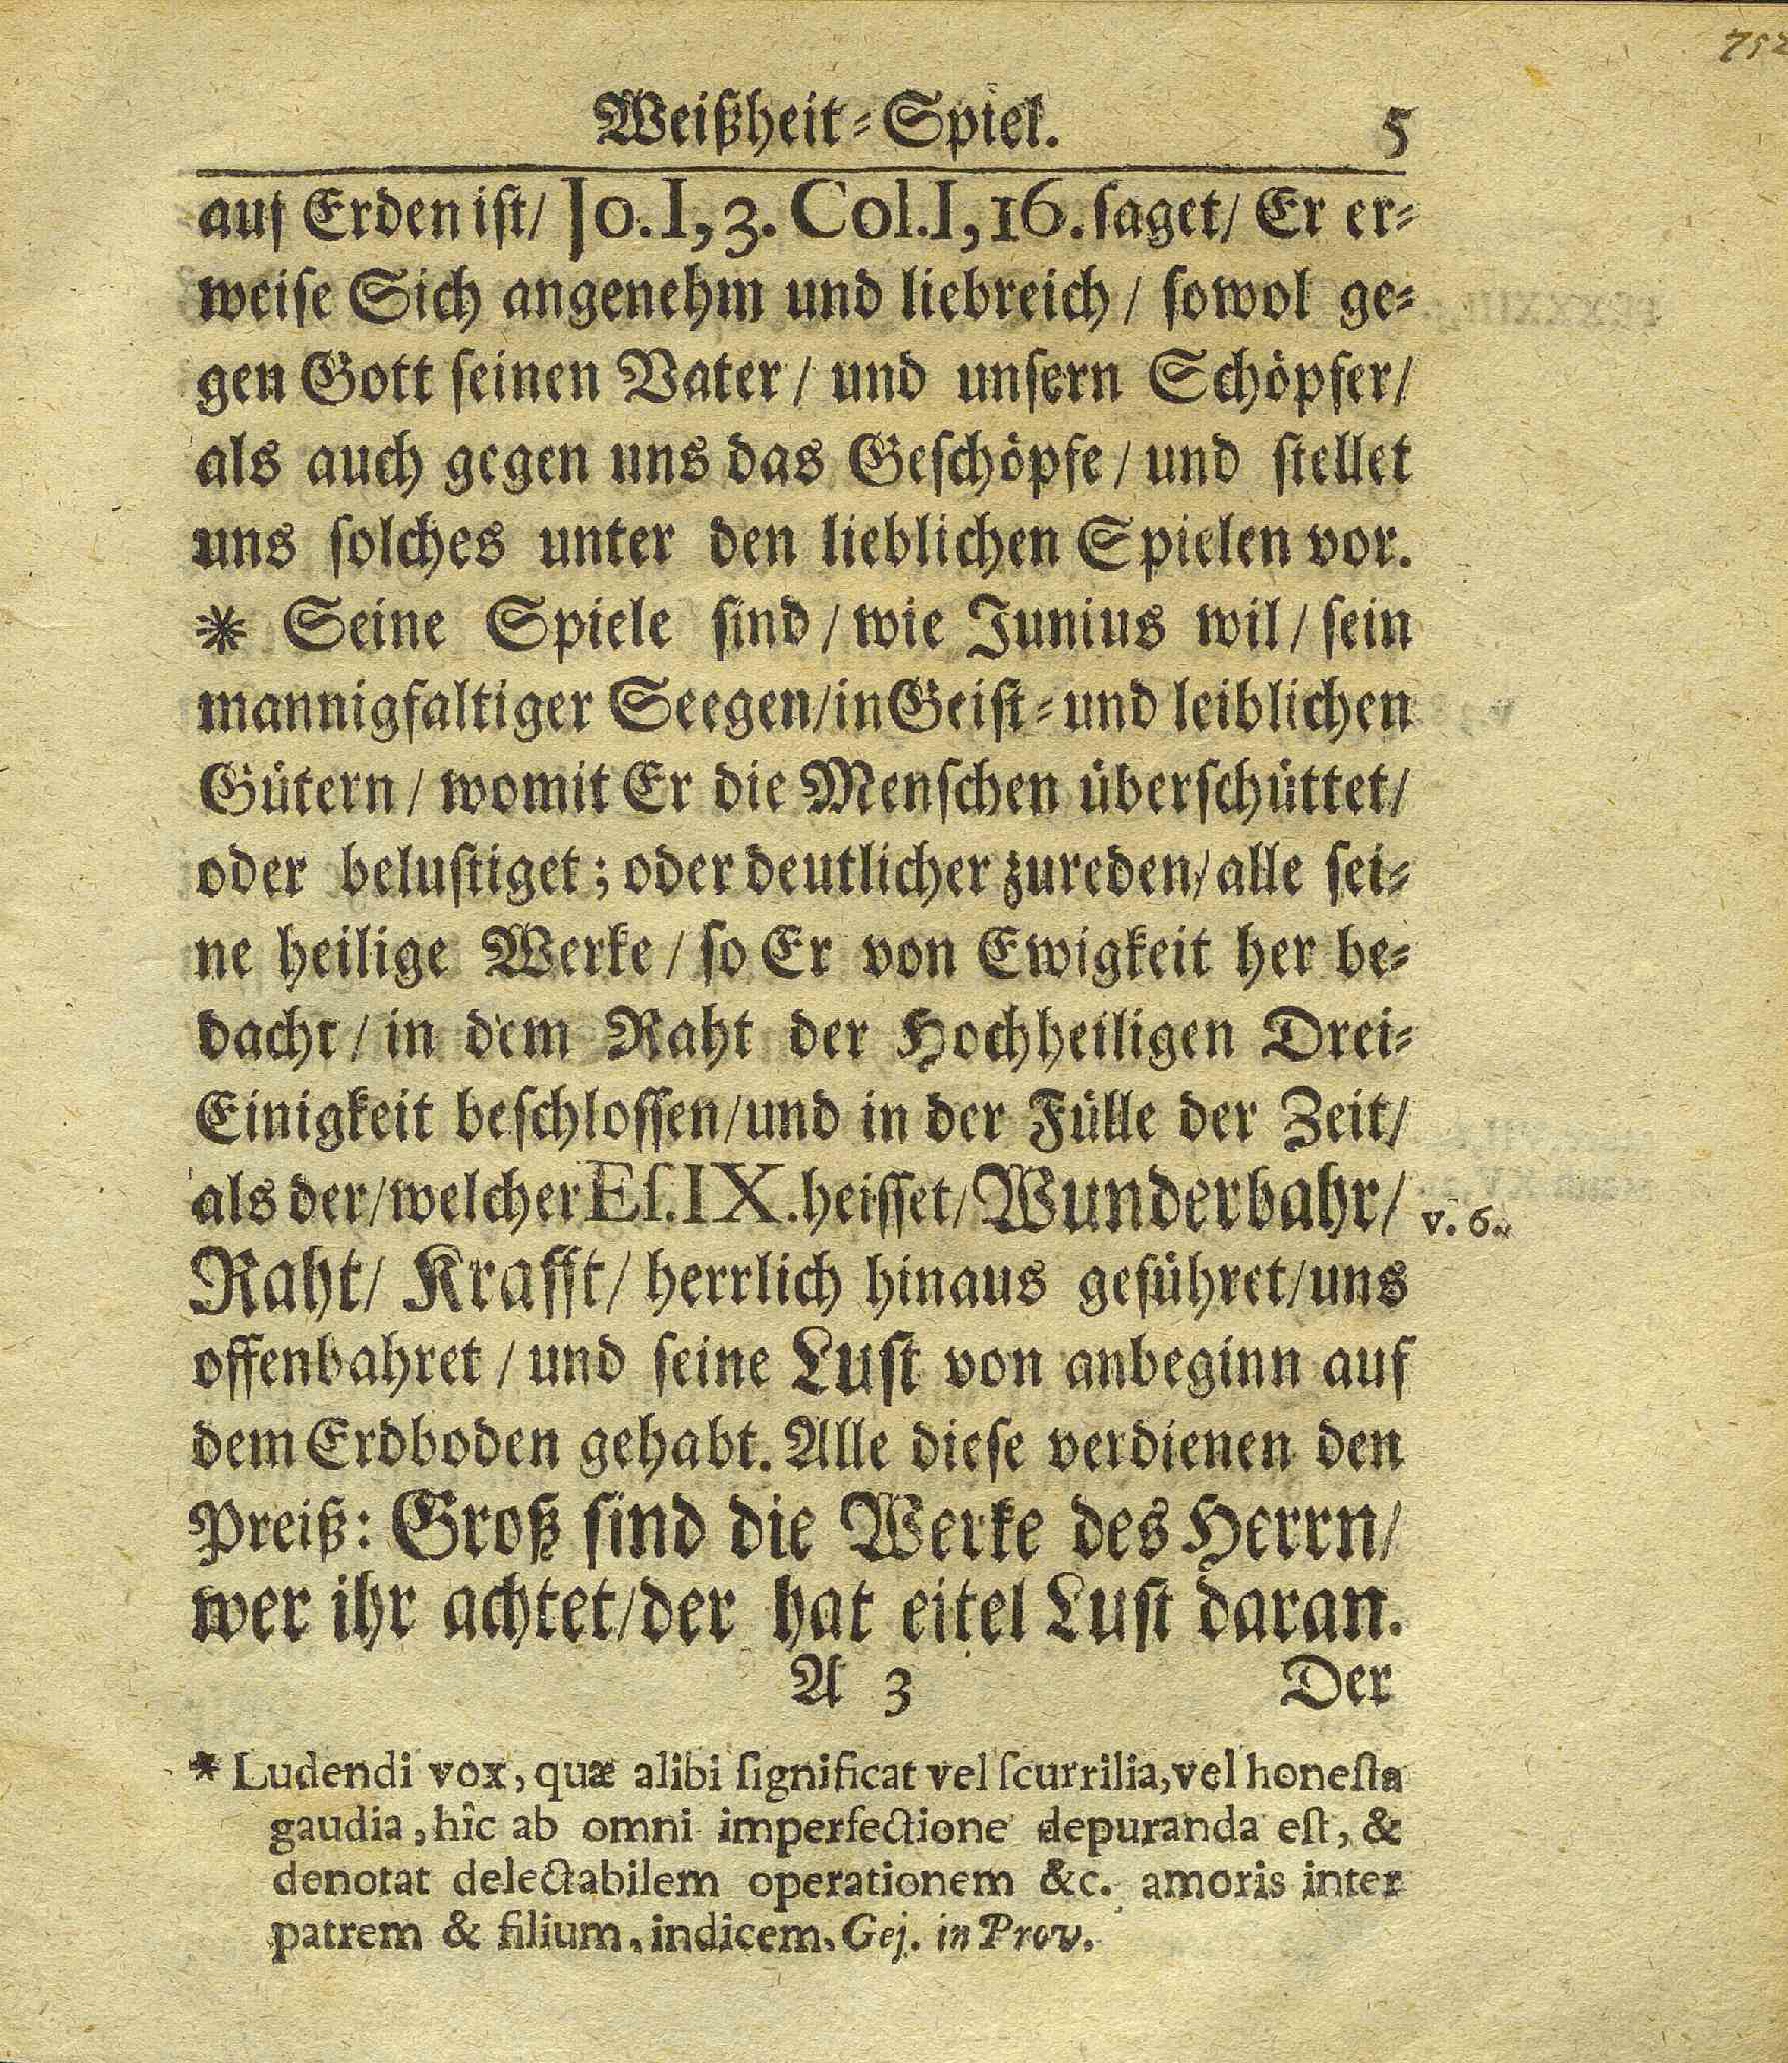 752
Weißheit-Spiel. 5
auf Erden ist/ Jo. I, 3. Col. I, 16. saget/ Er er-
weise Sich angenehm und liebreich/ sowol ge-
gen Gott seinen Vater/ und unsern Schöpfer/
als auch gegen uns das Geschöpfe/ und stellet
uns solches unter den lieblichen Spielen vor.
* Seine Spiele sind/ wie Junius wil/ sein
mannigfaltiger Seegen/ in Geist- und leiblichen
Gütern/ womit Er die Menschen überschüttet/
oder belustiget; oder deutlicher zureden/ alle sei-
ne heilige Werke/ so Er von Ewigkeit her be-
dacht/ in dem Raht der Hochheiligen Drei-
Einigkeit beschlossen/ und in der Fülle der Zeit/
als der/ welcher Eſ. IX. heisset/ Wunderbahr/ v. 6.
Raht/ Krafft/ herrlich hinaus geführet/ uns
offenbahret/ und seine Lust von anbeginn auf
dem Erdboden gehabt. Alle diese verdienen den
Preiß: Groß sind die Werke des Herrn/
wer ihr achtet/ der hat eitel Lust daran.
A 3 Der
* Ludendi vox, quæ alibi ſignificat vel ſcurrilia, vel honeſta
gaudia, hîc ab omni imperfectione depuranda eſt, &
denotat delectabilem operationem &c. amoris inter
patrem & filium, indicem. Gej. in Prov.